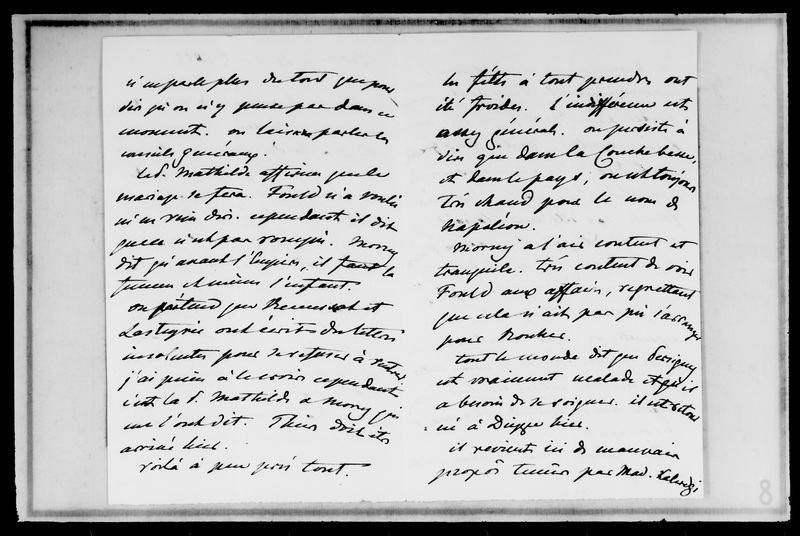 n'en parle plus du tout que pour
dire qu'on n'y pense pas dans ce
moment. on laisse parler les
conseils généraux.
Le d. Mathilde affirme que le
mariage se fera. Fould n'a voulu
m'en rien dire. cependant il dit
que ce n'est pas rompu. Morny
dit qu'avant l'Empire, il faut la
femme et même l'enfant.
on prétend que et
Lasteyrie ont écrit des lettres
insolentes pour se refuser à
j'ai peine à le croire cependant
c'est la d. Mathilde a Morny qui
me l'ont dit. Thiers doit être
arrivé hier.
voilà à peu près tout.
les fêtes à tout prendre ont
été froides. L'indifférence est
assez générale. on persiste à
dire que dans la
et dans le pays, on est toujours
très chaud pour le nom de
Napoléon.
Morny a l'air content et
tranquile. très content de voir
Fould aux affaires, regrettant
que cela n'ait pas pu s'arranger
pour Rouher.
tout le monde dit que Persigny
est vraiment malade et qu'il
a besoin de se soigner. il est retour
-né à Dieppe hier.
il revient ici de mauvais
propos tenus par Mad. Kalergi
8